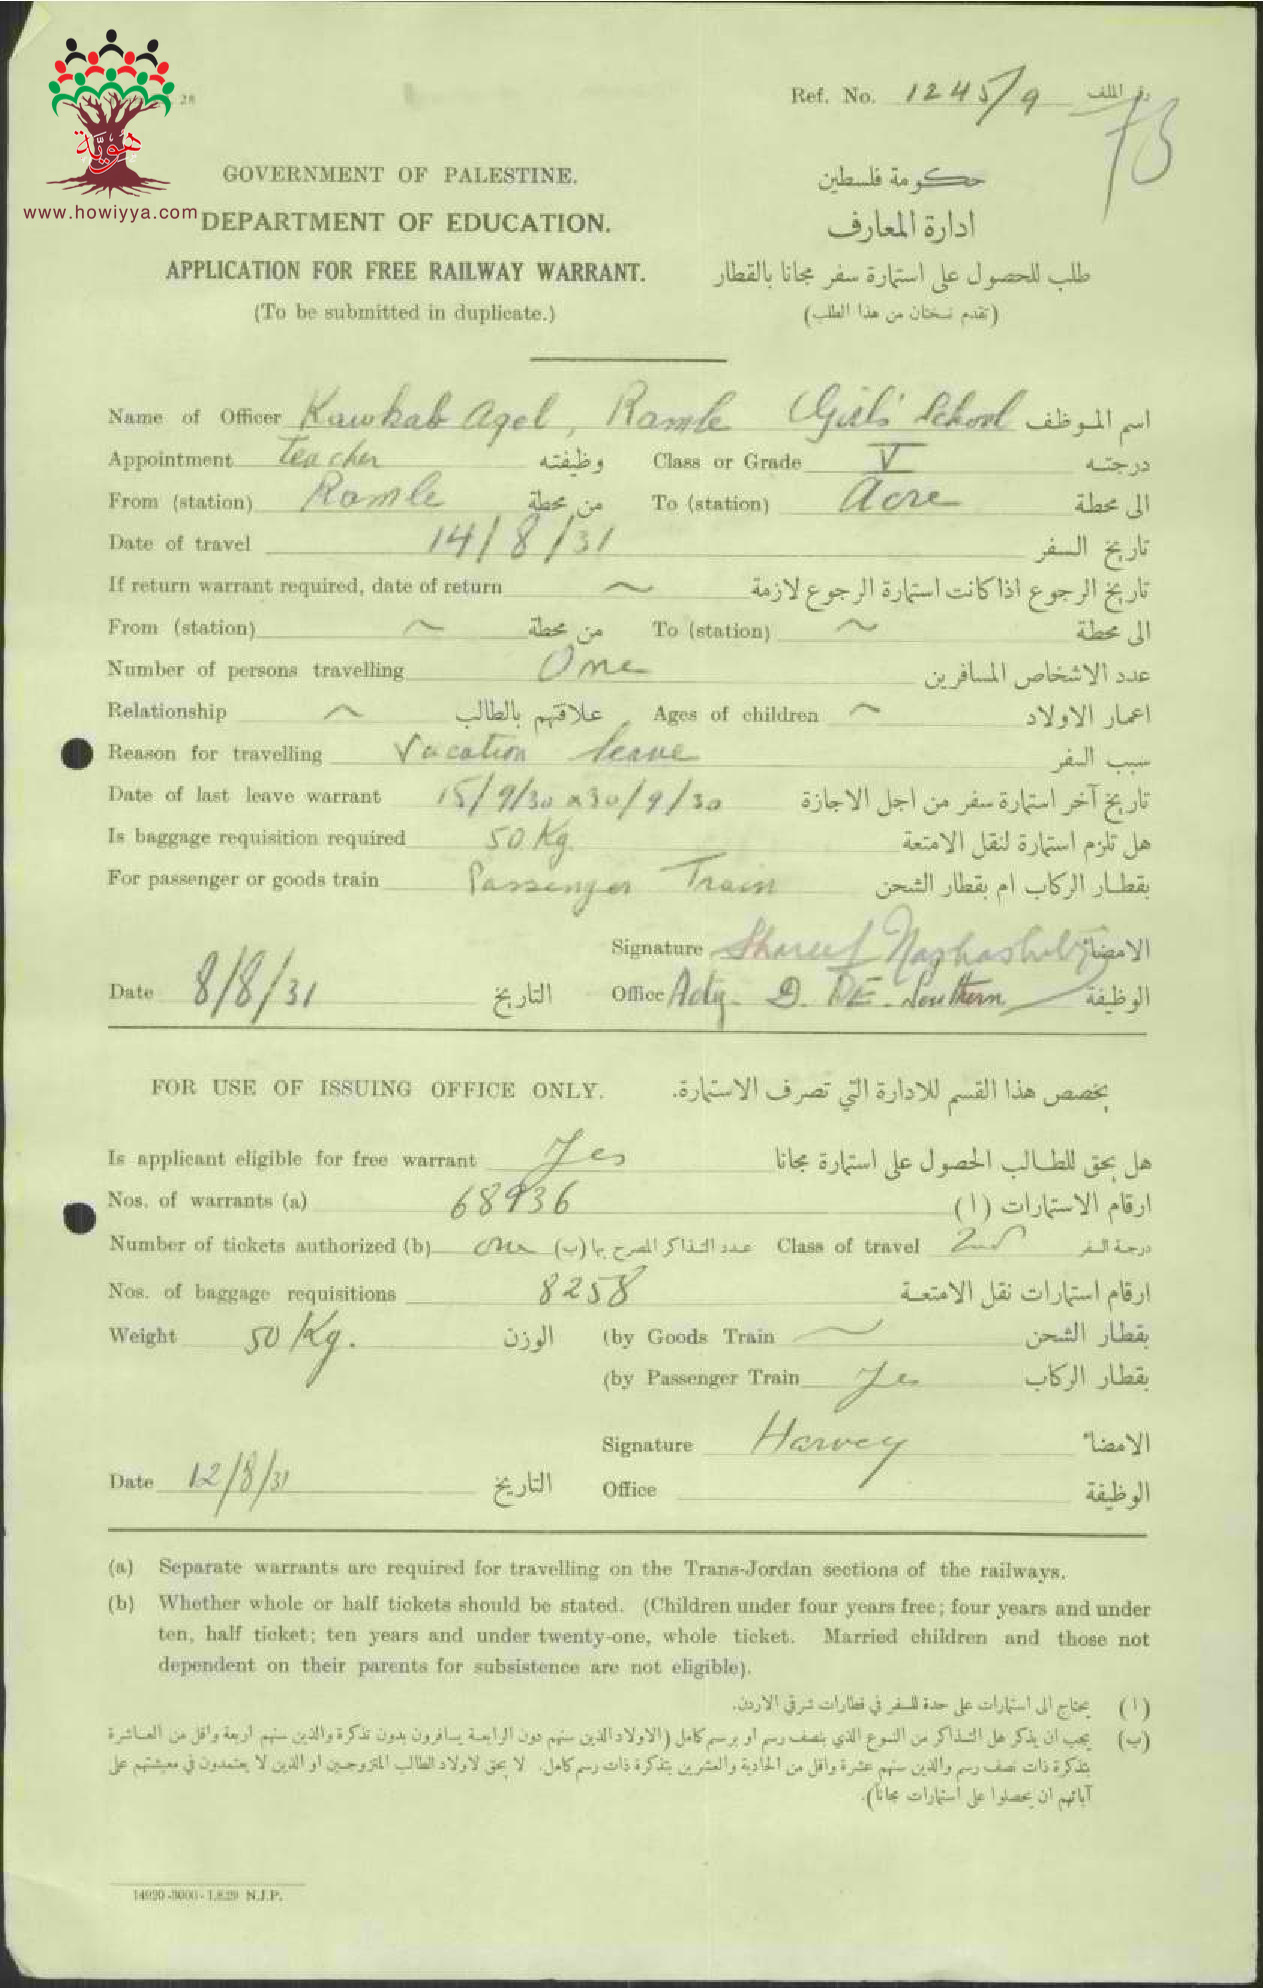 هوية
www.howiyya.com
28
Ref. No. 1245/9 رقم الملف
73
GOVERNMENT OF PALESTINE. حكومة فلسطين
DEPARTMENT OF EDUCATION. ادارة المعارف
APPLICATION FOR FREE RAILWAY WARRANT. طلب للحصول على استمارة سفر مجانا بالقطار
(To be submitted in duplicate.) (تقدم نسختان من هذا الطلب)
Name of Officer Kawkab Aqel, Ramle Girls' School اسم الموظف
Appointment Teacher وظيفته Class or Grade V درجته
From (station) Ramle من محطة To (station) Acre الى محطة
Date of travel 14/8/31 تاريخ السفر
If return warrant required, date of return ~ تاريخ الرجوع اذا كانت استمارة الرجوع لازمة
From (station) ~ من محطة To (station) ~ الى محطة
Number of persons travelling One عدد الاشخاص المسافرين
Relationship ~ علاقتهم بالطالب Ages of children ~ اعمار الاولاد
Reason for travelling Vacation leave سبب السفر
Date of last leave warrant 15/9/30 30/9/30 تاريخ آخر استمارة سفر من اجل الاجازة
Is baggage requisition required 50 Kg. هل تلزم استمارة لنقل الامتعة
For passenger or goods train Passenger Train بقطار الركاب ام بقطار الشحن
Signature Shareef Nashashibi الامضاء
Date 8/8/31 التاريخ Office Actg. D. I. E. Southern الوظيفة
FOR USE OF ISSUING OFFICE ONLY. يخصص هذا القسم للادارة التي تصرف الاستمارة.
Is applicant eligible for free warrant Yes هل يحق للطالب الحصول على استمارة مجانا
Nos. of warrants (a) 68936 ارقام الاستمارات (ا)
Number of tickets authorized (b) one عدد التذاكر المصرح بها (ب) Class of travel 2nd درجة السفر
Nos. of baggage requisitions 8258 ارقام استمارات نقل الامتعة
Weight 50 Kg. الوزن (by Goods Train ~ بقطار الشحن
(by Passenger Train Yes بقطار الركاب
Signature Harvey الامضاء
Date 12/8/31 التاريخ Office الوظيفة
(a) Separate warrants are required for travelling on the Trans-Jordan sections of the railways.
(b) Whether whole or half tickets should be stated. (Children under four years free; four years and under
ten, half ticket; ten years and under twenty-one, whole ticket. Married children and those not
dependent on their parents for subsistence are not eligible).
(ا) يحتاج الى استمارات على حدة للسفر في قطارات شرقي الاردن.
(ب) يجب ان يذكر هل التذاكر من النوع الذي بنصف رسم او برسم كامل (الاولاد الذين سنهم دون الرابعة يسافرون بدون تذكرة والذين سنهم اربعة واقل من العاشرة
بتذكرة ذات نصف رسم والذين سنهم عشرة واقل من الحادية والعشرين بتذكرة ذات رسم كامل. لا يحق لاولاد الطالب المتزوجين او الذين لا يعتمدون في معيشتهم على
آبائهم ان يحصلوا على استمارات مجانا).
14920-3000-1.8.29 N.J.P.